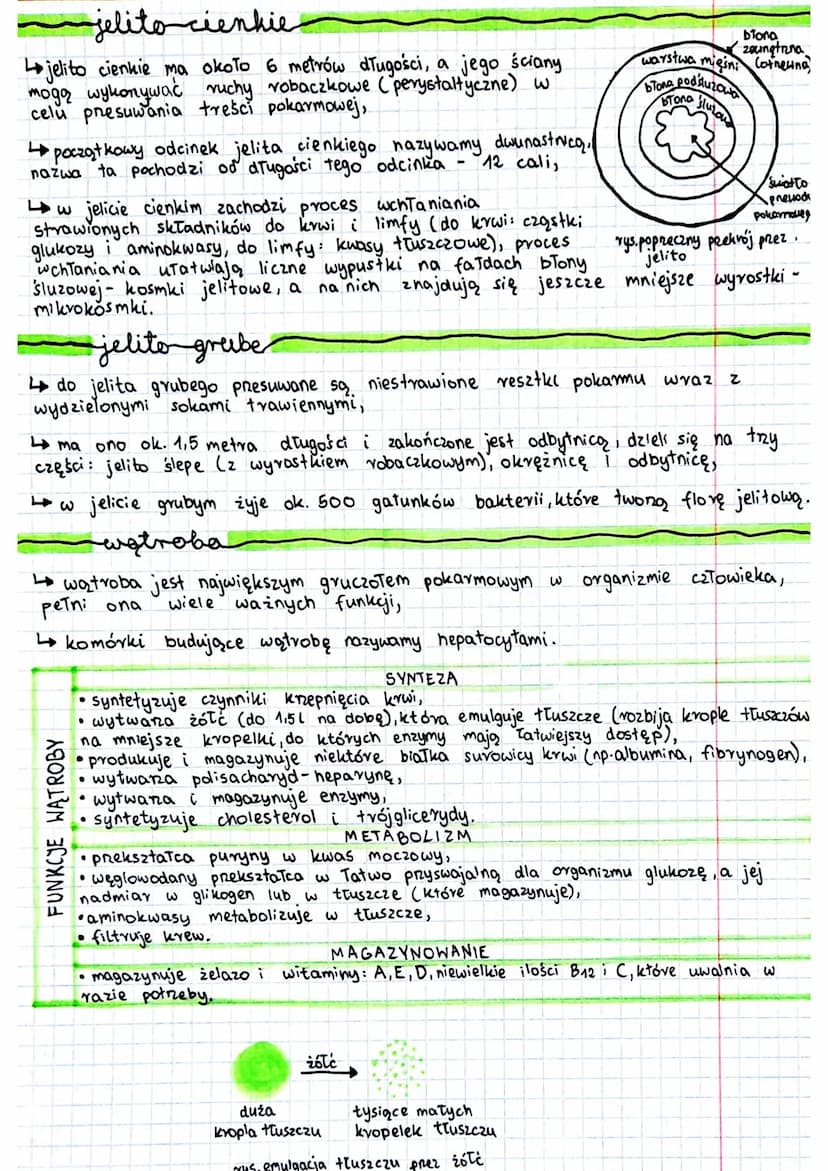 jelito cienkie
↳ jelito cienkie ma około 6 metrów długości, a jego ściany
mogą wykonywać ruchy robaczkowe (perystaltyczne) w
celu przesuwania treści pokarmowej,
↳ początkowy odcinek jelita cienkiego nazywamy dwunastnicą,
nazwa ta pochodzi od długości tego odcinka - 12 cali,
↳ w jelicie cienkim zachodzi proces wchłaniania
strawionych składników do krwi i limfy (do krwi: cząstki
glukozy i aminokwasy, do limfy: kwasy tłuszczowe), proces
wchłaniania ułatwiają liczne wypustki na fałdach błony
śluzowej - kosmki jelitowe, a na nich znajdują się jeszcze mniejsze wyrostki -
mikrokosmki.
błona
zewnętrzna
(otrzewna)
warstwa mięśni
błona podśluzowa
błona śluzowa
światło
przewodu
pokarmowego
rys. poprzeczny przekrój przez
jelito
jelito grube
↳ do jelita grubego przesuwane są niestrawione resztki pokarmu wraz z
wydzielonymi sokami trawiennymi,
↳ ma ono ok. 1,5 metra długości i zakończone jest odbytnicą, dzieli się na trzy
części: jelito ślepe (z wyrostkiem robaczkowym), okrężnicę i odbytnicę,
↳ w jelicie grubym żyje ok. 500 gatunków bakterii, które tworzą florę jelitową.
wątroba
↳ wątroba jest największym gruczołem pokarmowym w organizmie człowieka,
pełni ona wiele ważnych funkcji,
↳ komórki budujące wątrobę nazywamy hepatocytami.
FUNKCJE WĄTROBY
SYNTEZA
• syntetyzuje czynniki krzepnięcia krwi,
• wytwarza żółć (do 1,5l na dobę), która emulguje tłuszcze (rozbija krople tłuszczów
na mniejsze kropelki, do których enzymy mają łatwiejszy dostęp),
• produkuje i magazynuje niektóre białka surowicy krwi (np. albumina, fibrynogen),
• wytwarza polisacharyd - heparynę,
• wytwarza i magazynuje enzymy,
• syntetyzuje cholesterol i trójglicerydy.
METABOLIZM
• przekształca puryny w kwas moczowy,
• węglowodany przekształca w łatwo przyswajalną dla organizmu glukozę, a jej
nadmiar w glikogen lub w tłuszcze (które magazynuje),
• aminokwasy metabolizuje w tłuszcze,
• filtruje krew.
MAGAZYNOWANIE
• magazynuje żelazo i witaminy: A, E, D, niewielkie ilości B12 i C, które uwalnia w
razie potrzeby.
żółć
duża
kropla tłuszczu
tysiące małych
kropelek tłuszczu
rys. emulgacja tłuszczu przez żółć